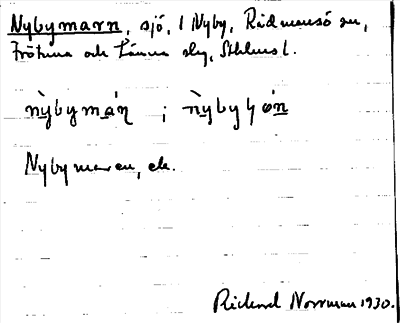 Nybymarn, sjö, I Nyby, Rådmansö sn,
Frötuna och Länna slg, Sthlms l.
nỳbymán ; nỳbyhón
Nybymaren, ek.
Rickard Norrman 1930.